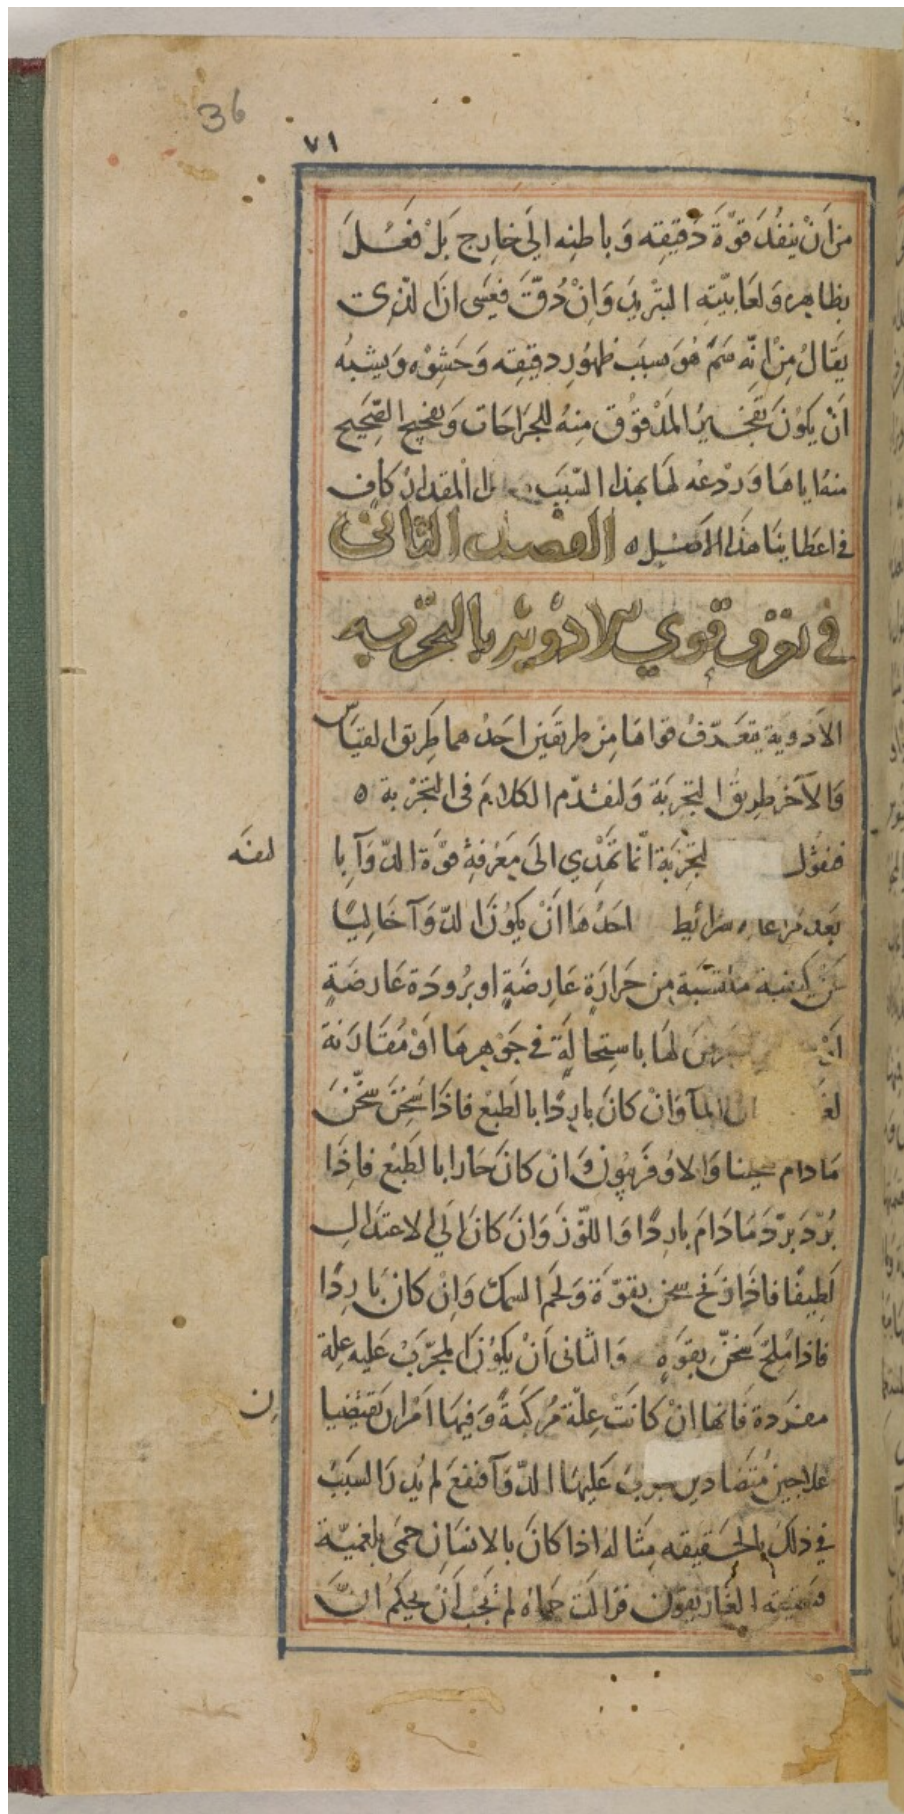 36
٧١
من اَنْ ينفُذ قوّة دَقيقِه وَباطنِه الَى خارِج بَلْ فعْلَ
بظاهِره وَلعَابيّتِه التبْريدَ وَانْ دُقّتَ فعَسَى انَ الذى
يقَالُ مِنْ انّه سَم هُوَ سبَب ظهُورِ دقيقِه وَحَشِوْه وَيشبهُ
اَنْ يكُونَ تفجيرُ المَدْقوُق منِهُ للجَرَاحَات وَتفجيج الصّحيح
منهُ اياهَا وَردْعُه لهَا بهذا السّبَب المقدارُ كافٍ
فى اعطاينَا هَذا الاصْل ه الفصل الثانى
في تعرف قوي الادوية بالتجربه
الاَدوية يتعَرّفُ قواهَا مِنْ طريقيَن احَدُهما طَريق القيَاس
وَالآخَر طريقُ التجربَة وَلنقدّم الكلامَ فى التجْربة ه
فنقوُل لتجْربَة انّما تهَدْي الَى مَعْرفةِ قوّة الدّوَآء با
لفه
بَعد مرَاعاه شرائيط احَدُهَا اَنْ يكوُن الدّوَآ خَاليًا
عَنْ كيفية مكتسَبة مِن حَرارَةٍ عَارضَةٍ او بُرودَة عَارضَةٍ
لهَا باستِحالَةٍ فى جَوْهِرهَا اَوْ مُقَارَنة
الماۤ وَانْ كانَ باردًا بالطَبْع فاذَا سُخِنَ سَخّنَ
مَا دام سخينا وَالاوُفَربيُون وَ ان كانَ حَارا بالطَبْع فاذَا
بُرّدَ برّدَ مَادَامَ باردًا وَاللّوْز وَانَ كانَ الي الاعتدَال
لَطيفًا فاذَا زنخ سخن بقوّة وَلحم السمك وَانْ كان بَاردًا
فاذا مُلِحَ سَخَنّ بقوَةٍ وَالثانى اَنْ يكوُن المجَرّبَ عَليه عِلة
مفرَدة فَانها انْ كانَتْ عِلّة مرُكبَةً وَفيهَا امَرْان يَقتَضيا
ن
علاجَين مُتضَادين عَليهَا الدّوَآ فنفعَ لم يُدرَ السَبَبْ
في ذلكَ بالحَقيقه مِثَالهُ اذا كانَ بالانسَانِ حمَى بلغميّة
الغَاريقون فزالت حمّاهُ لم يجَبْ اَنْ يحكمُ انّ